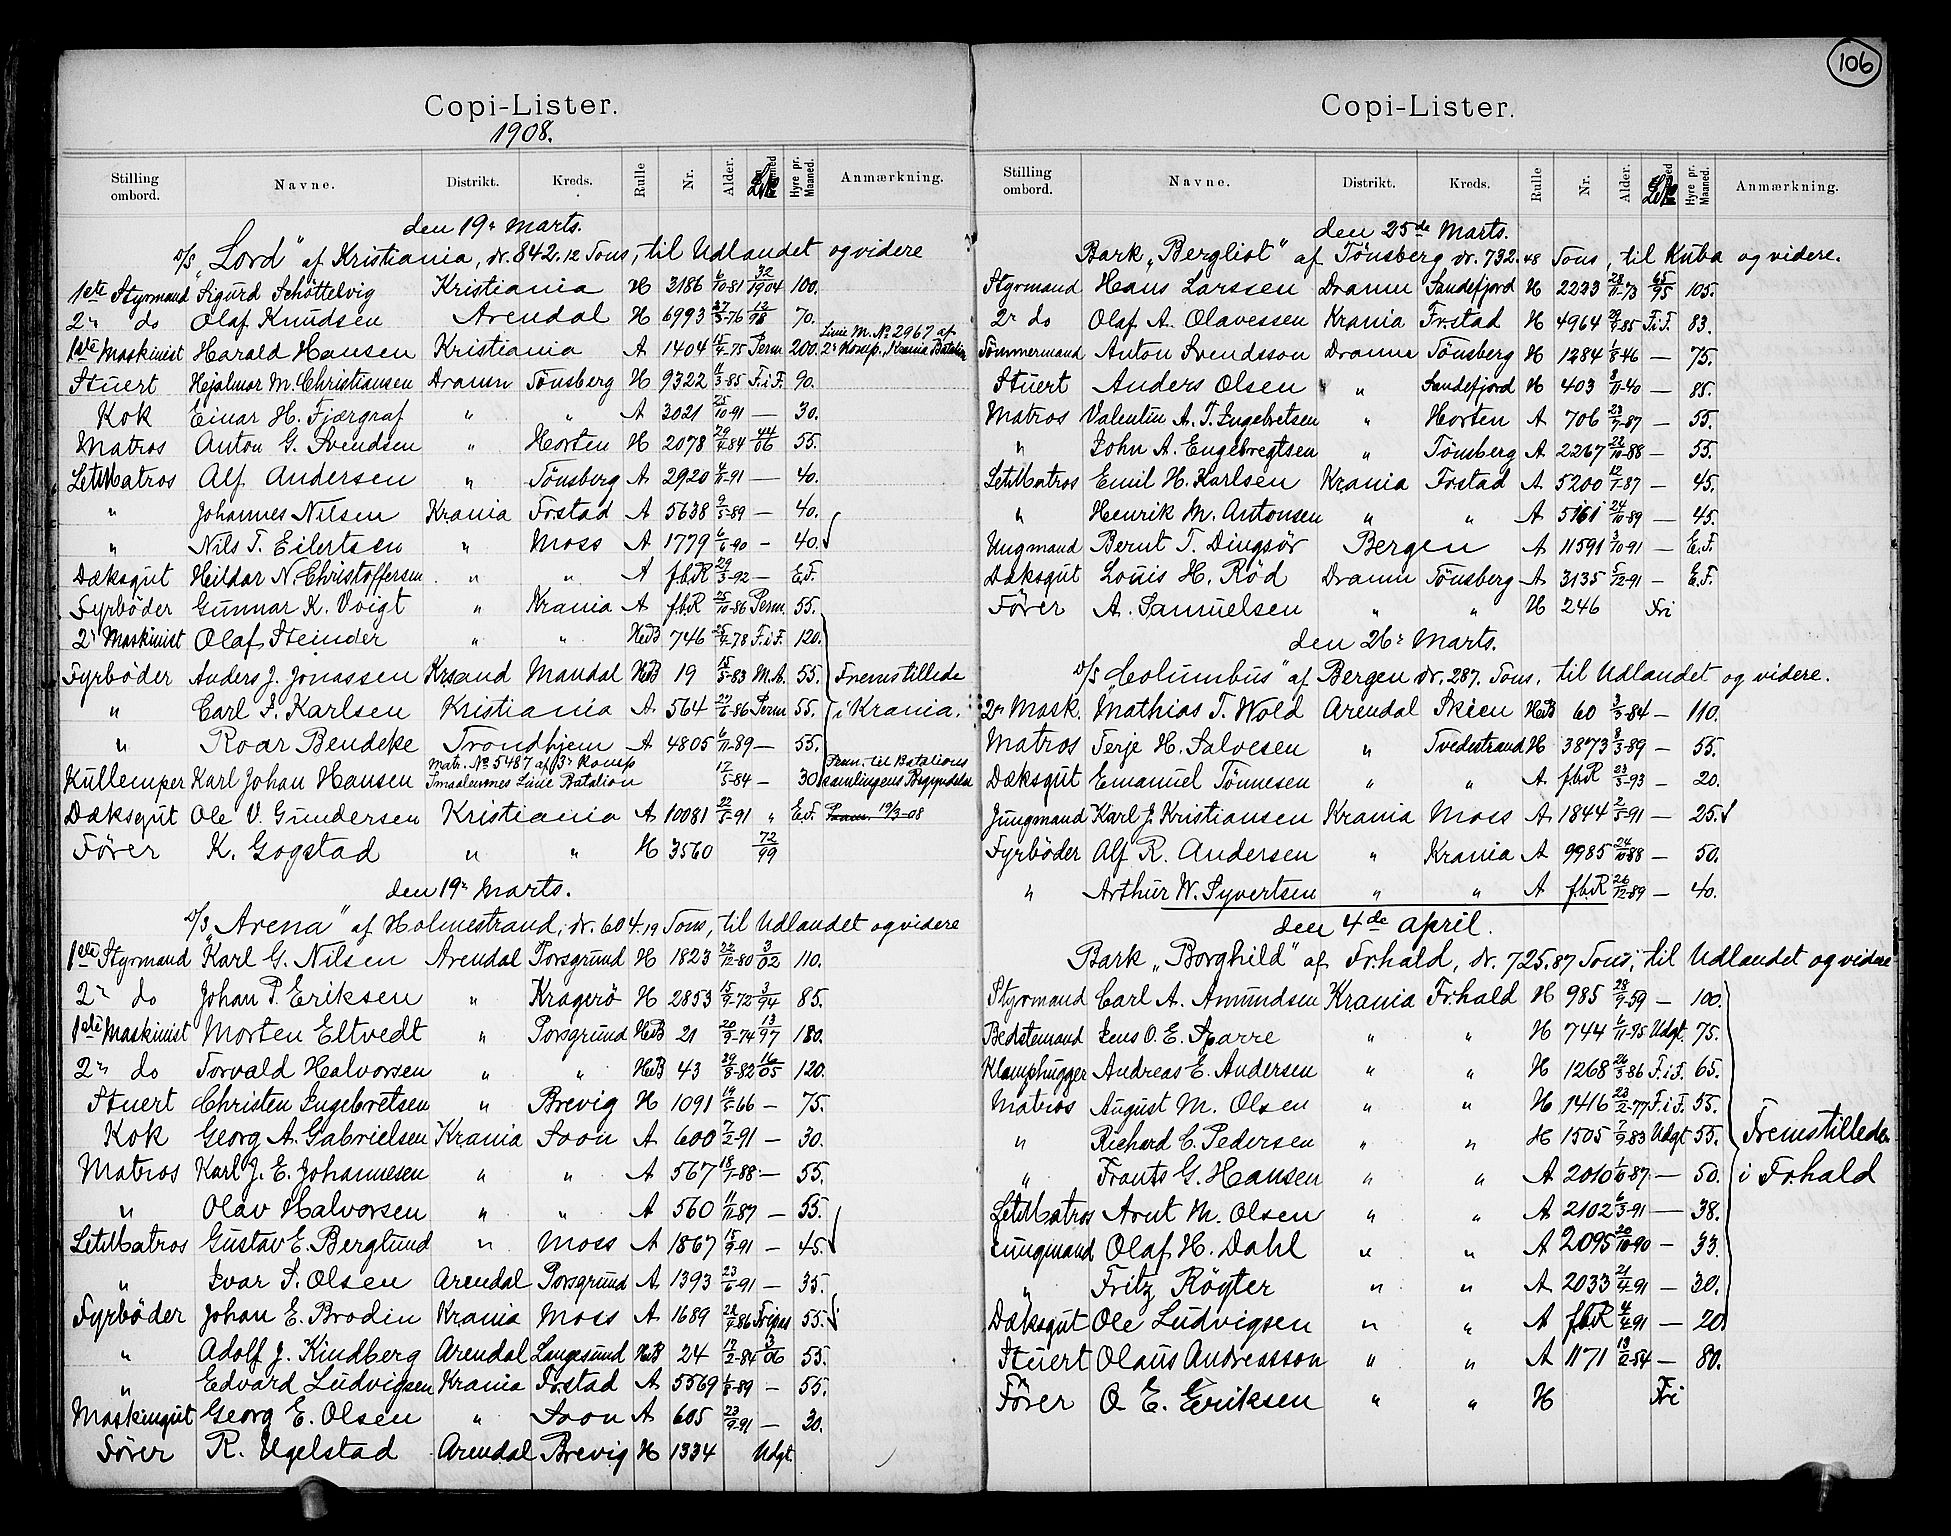 106
Copi-Lister.
1908.
Stilling ombord. Navne. Distrikt. Kreds. Rulle Nr. Alder. Hyre pr. Maaned. Anmærkning.
den 19. Marts.
D/S „Lord" af Kristiania, dr. 842.12 Tons, til Udlandet og videre
1ste Styrmand Sigurd Schöttelvig Kristiania H 3186 6/10-81 32/1904 100.
2n do Olaf Knudsen Arendal H 6993 27/3-76 12/98 70.
1ste Maskinist Harald Hansen Kristiania A 1404 15/4-75 Perm 200. Linie M. No 2967 af 2n Komp. Krania Batalion
Stuert Hejalmar M. Christiansen Dramn Tönsberg H 9322 11/3-85 F.i F. 90.
Kok Einar H. Fjærgraf " " A 3021 25/10-91 — 30.
Matros Anton G. Svendsen " Horten H 2078 29/4-84 44/06 55.
LetMatros Alf Andersen " Tönsberg A 2920 4/8-91 — 40.
" Johannes Nilsen Krania Frstad A 5638 9/5-89 — 40.
" Nils T. Eilertsen " Moss A 1779 6/6-90 — 40.
Dæksgut Hildar N. Christoffersen " " A fbR 29/3-92 — E.F.
Fyrböder Gunnar K. Voigt " Krania A fbR 25/10-86 Perm 55.
2n Maskinist Olaf Steinder " " HedB 746 25/4-78 F.i F. 120.
Fyrböder Anders J. Jonassen Krsand Mandal HedB 19 15/5-83 M.A. 55. Fremstillede
" Carl F. Karlsen Kristiania A 564 22/6-86 Perm 55. i Krania.
" Roar Bendeke Trondhjem A 4805 6/11-89 — 55.
Kullemper Karl Johan Hansen Matr. No 5487 af 3n Komp Smaalenenes Linie Batalion 12/5-84 — 30 Perm. til Batalions samlingens Begyndelse
Dæksgut Ole V. Gundersen Kristiania A 10081 22/5-91 " E.F. 19/3-08
Förer K. Gogstad " " H 3560 72/99
den 19n Marts.
D/S „Arena" af Holmestrand, dr. 604.19 Tons, til Udlandet og videre
1ste Styrmand Karl G. Nilsen Arendal Porsgrund H 1823 22/12-80 3/02 110.
2n do Johan P. Eriksen " Kragerö H 2853 15/9-72 3/94 85.
1ste Maskinist Morten Eltvedt " Porsgrund HedB 21 20/9-74 13/97 180.
2n do Torvald Halvorsen " " HedB 43 29/8-82 16/05 120.
Stuert Christen Ingebretsen " Brevig H 1091 19/5-66 — 75.
Kok Georg A. Gabrielsen Krania Soon A 600 7/2-91 — 30.
Matros Karl J. E. Johannesen " " A 567 18/1-88 — 55.
" Olav Halvorsen " " A 560 11/11-87 — 55.
LetMatros Gustav E. Berglund " Moss A 1867 15/9-91 — 45.
" Ivar S. Olsen Arendal Porsgrund A 1393 23/6-91 — 35.
Fyrböder Johan E. Brodin Krania Moss A 1689 28/9-86 55.
" Adolf J. Kindberg Arendal Langesund HedB 24 12/2-84 3/06 55.
" Edvard Ludvigsen Krania Frstad A 5569 1/8-89 — 55.
Maskingut Georg E. Olsen " Soon A 605 23/9-91 — 30.
Förer R. Ugelstad Arendal Brevig H 1334 Udgt.
Copi-Lister.
Stilling ombord. Navne. Distrikt. Kreds. Rulle Nr. Alder. Hyre pr. Maaned. Anmærkning.
den 25de Marts.
Bark „Bergliot" af Tönsberg dr. 732.48 Tons, til Kuba og videre.
Styrmand Hans Larssen Dramn Sandefjord H 2223 28/11-73 65/95 105.
2n do Olaf A. Olavessen Krania Frstad H 4964 29/9-85 F.i F. 83.
Tömmermand Anton Svendsson Dramn Tönsberg H 1284 1/8-46 — 75.
Stuert Anders Olsen " Sandefjord H 403 8/11-40 — 85.
Matros Valentin A. T. Ingebretsen " Horten A 706 23/7-87 — 55.
" John A. Engebregtsen " Tönsberg A 2267 22/10-88 — 55.
LetMatros Emil H. Karlsen Krania Frstad A 5200 12/7-87 — 45.
" Henrik M. Antonsen " " A 5161 24/10-89 — 45.
Ungmand Bernt T. Dingsör Bergen A 11591 3/10-91 — E.F.
Dæksgut Louis H. Röd Dramn Tönsberg A 3135 5/12-91 — E.F.
Förer A. Samuelsen " " H 246 Fri
den 26n Marts.
D/S „Columbus" af Bergen dr. 287. Tons, til Udlandet og videre.
2n Mask. Mathias T. Wold Arendal Skien HedB 60 3/3-84 — 110.
Matros Terje H. Salvesen " Tvedestrand H 3873 8/3-89 — 55.
Dæksgut Emanuel Tönnesen " " A fbR 23/3-93 — 20.
Jungmand Karl J. Kristiansen Krania Moss A 1844 2/5-91 — 25.
Fyrböder Alf R. Andersen " Krania A 9985 24/10-88 — 50.
" Arthur W. Syvertsen " " A fbR 26/12-89 — 40.
den 4de April.
Bark „Borghild" af Frhald, dr. 725.87 Tons, til Udlandet og videre
Styrmand Carl A. Amundsen Krania Frhald H 985 28/9-59 — 100.
Bedstemand Jens O. E. Sparre " " H 744 6/11-75 Udgt. 75.
Klamphugger Andreas E. Andersen " " H 1268 26/3-86 F.i F. 65.
Matros August M. Olsen " " H 1416 23/2-77 F.i F. 55.
" Richard C. Pedersen " " H 1505 7/9-83 Udgt 55. Fremstilledes
" Frants G. Hansen " " A 2010 1/6-87 — 50. i Frhald
LetMatros Arnt M. Olsen " " A 2102 6/3-91 — 38.
Jungmand Olaf H. Dahl " " A 2095 20/10-90 — 33.
" Fritz Rögter " " A 2033 21/4-91 — 30.
Dæksgut Ole Ludvigsen " " A fbR 4/4-91 — 20
Stuert Olaus Andreasson " " A 1171 13/2-54 — 80.
Förer O. E. Eriksen " " H Fri